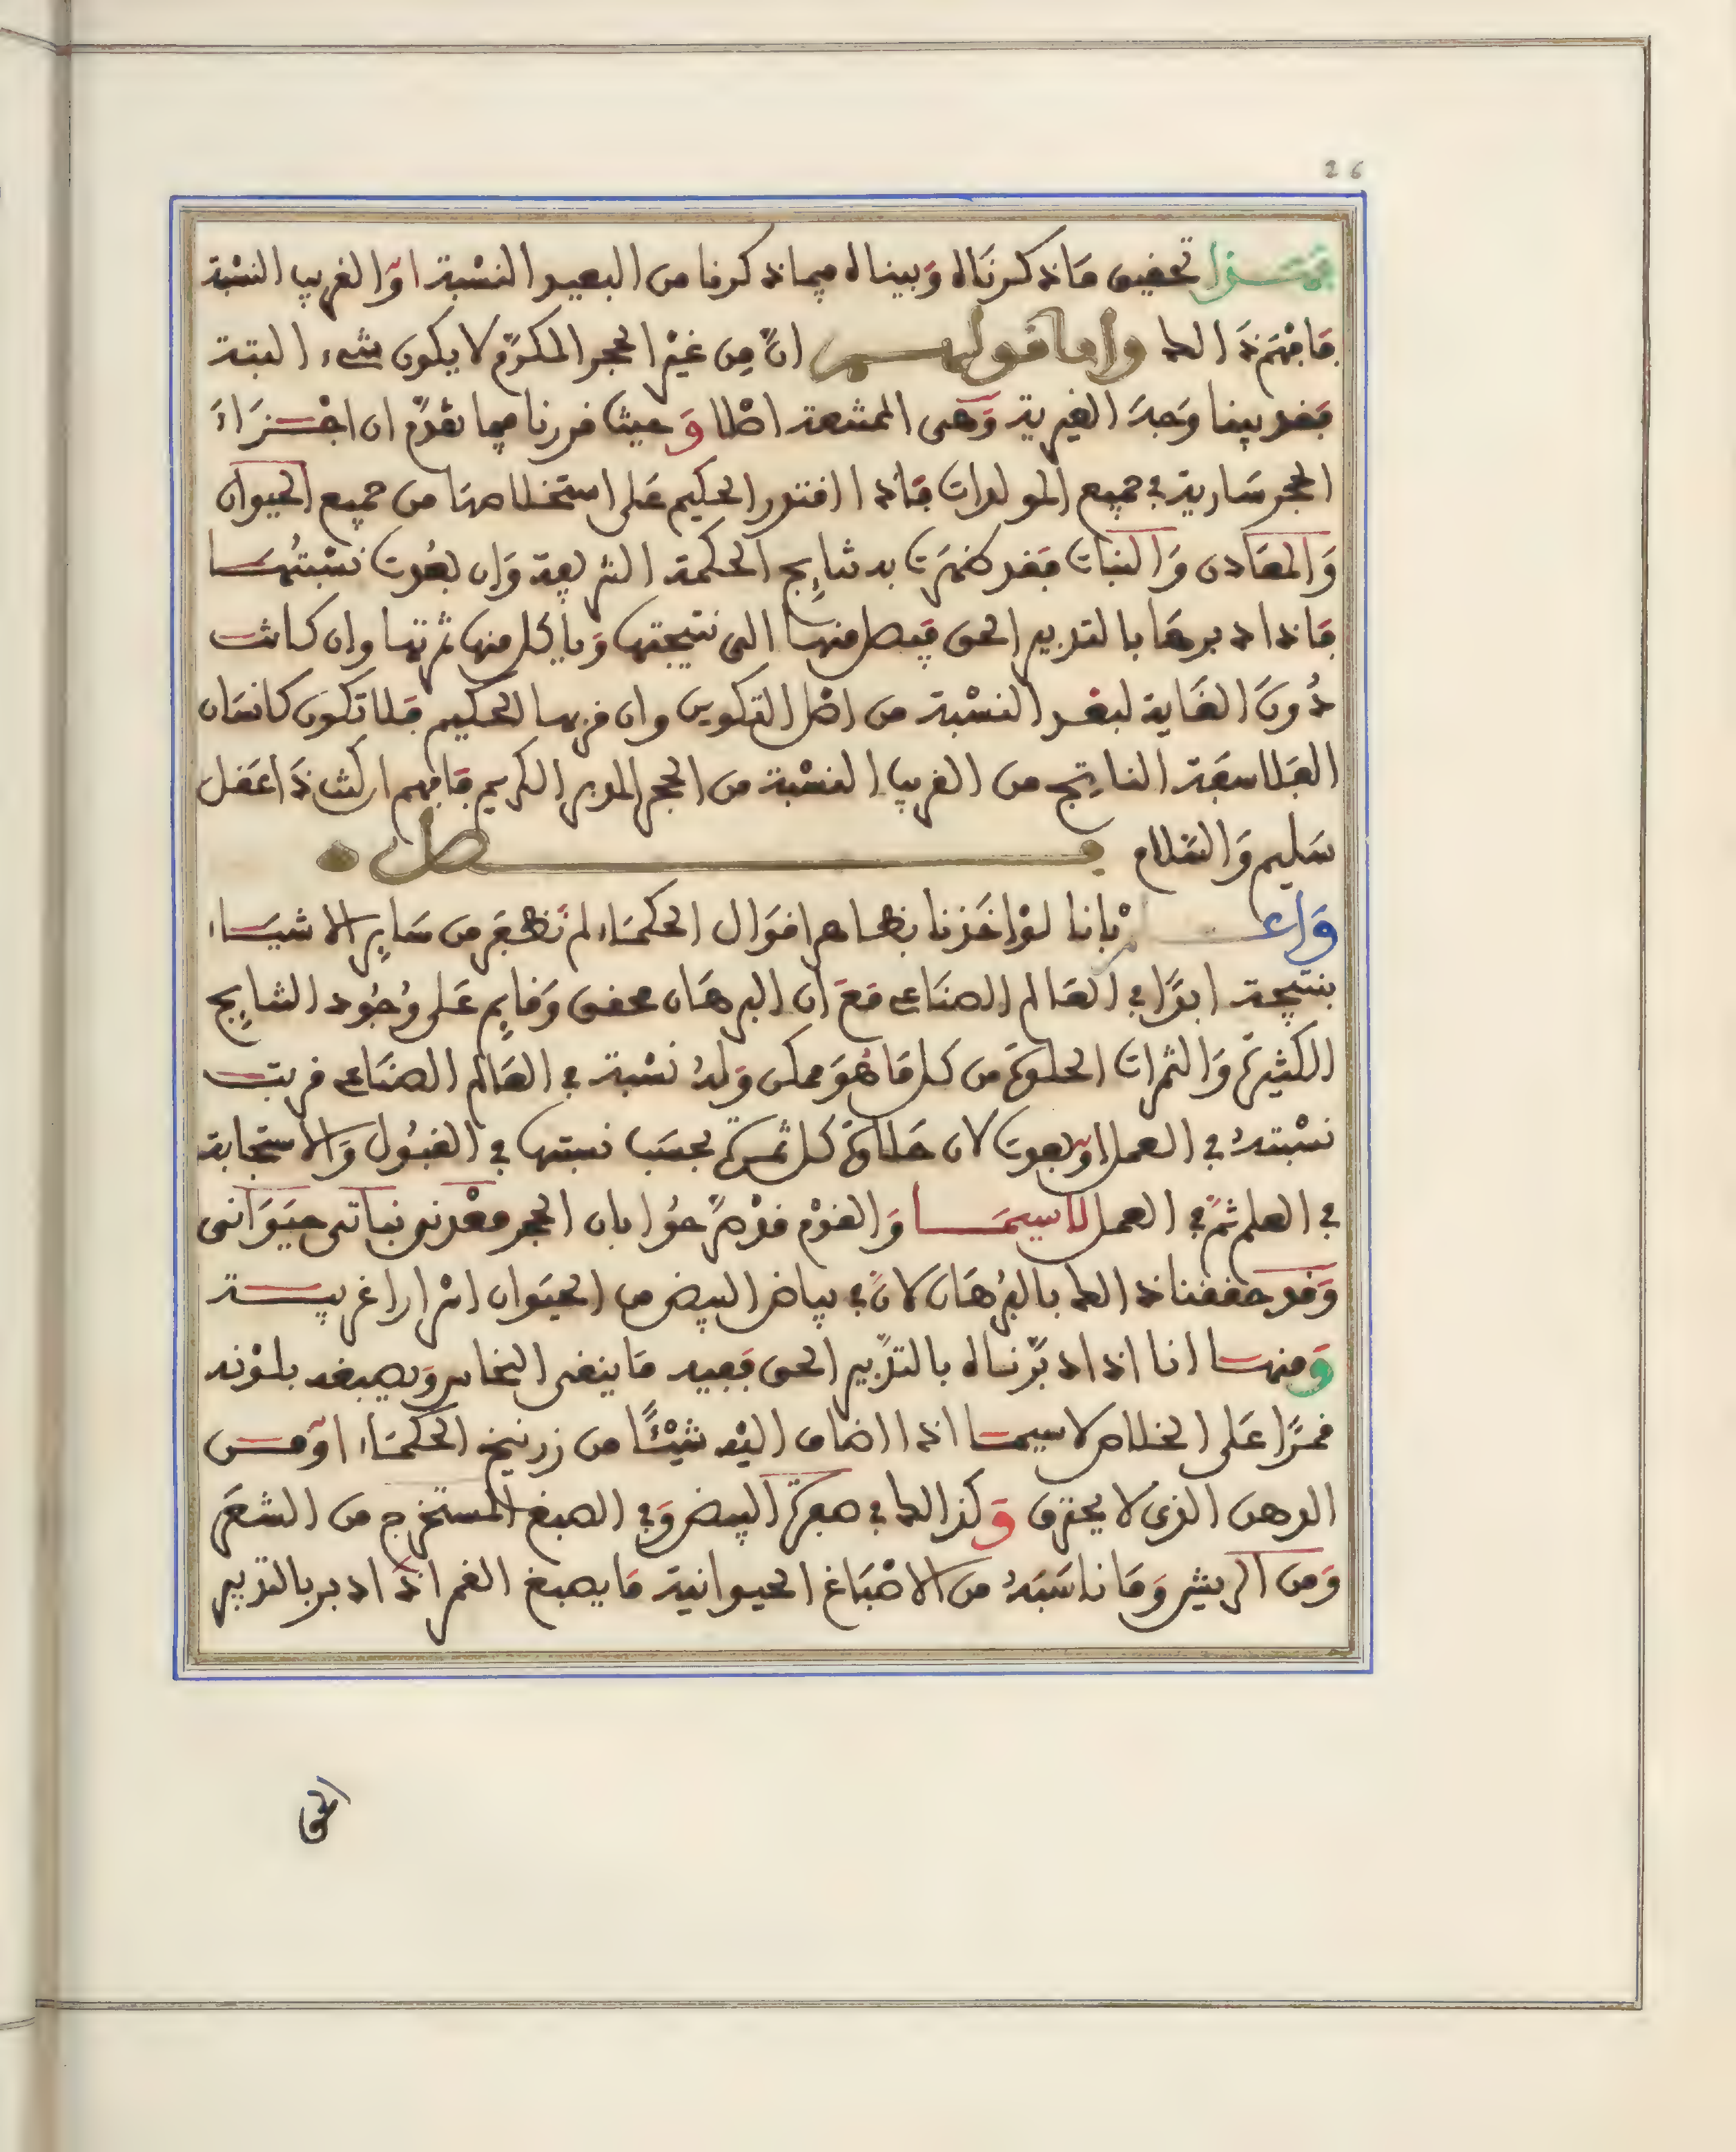 26
فهذا تحقيق ما ذكرناه وبيناه فيما ذكرنا من البعيد النسبة او القريب النسبة
فافهم ذالك واما قولهم ان من غير الحجر المكرم لا يكون شيء البتة
فقد بينا وجه الغيرية وهى الممتنعة اصلا وحيث قررنا فيما تقدم ان اجزاء
الحجر سارية في جميع المولدات فاذا اقتدر الحكيم على استخلاصها من جميع الحيوان
والمعادن والنبات فقد ظهرت به نتايج الحكمة الشريفة وان بعدت نسبتها
فاذا دبرها بالتدبير الحق فيصل منها الى نتيجتها وياكل منها ثمرتها وان كانت
دون الغاية لبعد النسبة من اصل التكوين وان قربها الحكيم فلا تكون كانسان
الفلاسفة الناتج من القريب النسبة من الحجر المدبر الكريم فافهم ان كنت ذا عقل
سليم والسلام فصل
واعلم باننا لو اخذنا بظاهر اقوال الحكماء لم نظفر من ساير الاشياء
بنتيجة ابدا في العالم الصناعي مع ان البرهان محقق وقايم على وجود النتايج
الكثيرة والثمرات الحلوة من كل ما هو ممكن وله نسبة في العالم الصناعي قربت
نسبته في العمل او بعدت لان حلاوة كل ثمرة بحسب نسبتها في القبول والاستجابة
في العلم ثم في العمل لاسيما والقوم قد صرحوا بان الحجر معدني نباتي حيواني
وقد حققنا ذالك بالبرهان لان في بياض البيض من الحيوان اسرارا غريبة
ومنها انا اذا دبرناه بالتدبير الحق ففيه ما ينقى النحاس ويصبغه بلونه
قمرا على الخلاص لاسيما اذا اضاف اليه شيئا من زرنيخ الحكماء او من
الدهن الذي لا يحترق وكذالك في صفرة البيض وفي الصبغ المستخرج من الشعر
ومن الريش وما ناسبه من الاصباغ الحيوانية ما يصبغ القمر اذا دبر بالتدبير
الحق